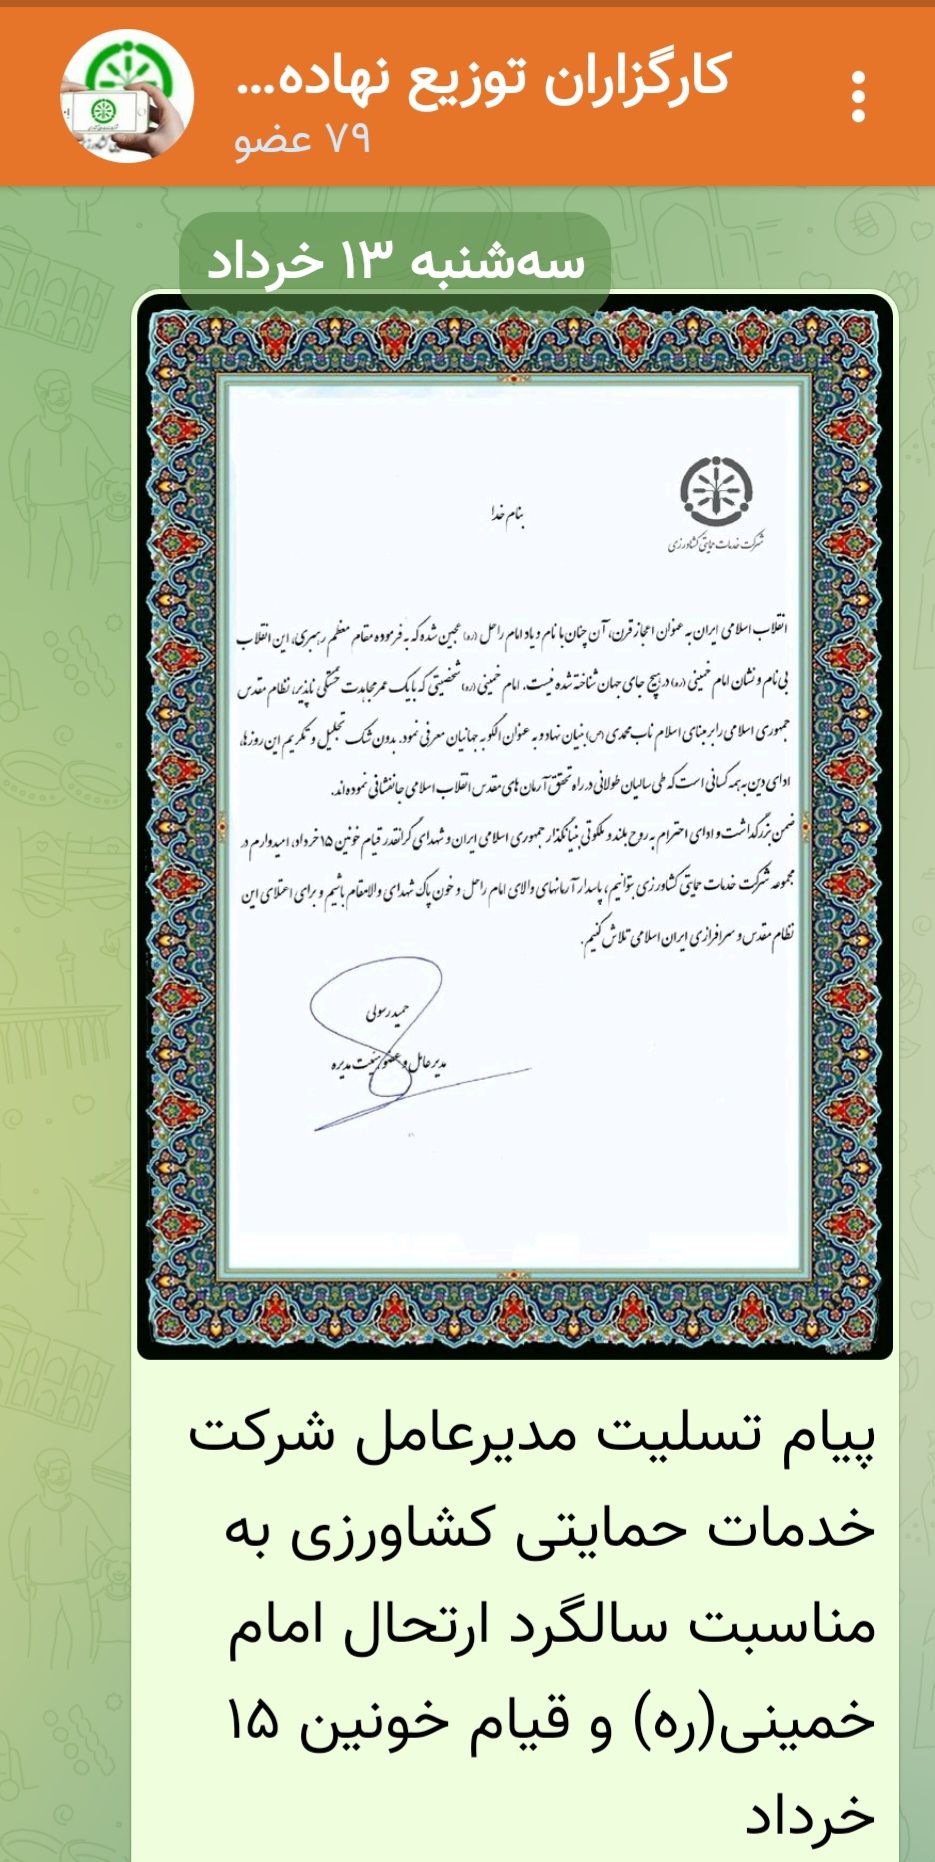 کارگزاران توزیع نهاده...
۷۹ عضو
سه‌شنبه ۱۳ خرداد
شرکت خدمات حمایتی کشاورزی
بنام خدا
انقلاب اسلامی ایران به عنوان اعجاز قرن، آن چنان با نام و یاد امام راحل (ره) عجین شده که به فرموده مقام معظم رهبری، این انقلاب
بی نام و نشان امام خمینی (ره) در هیچ جای جهان شناخته شده نیست. امام خمینی (ره) شخصیتی که با یک عمر مجاهدت خستگی ناپذیر، نظام مقدس
جمهوری اسلامی را بر مبنای اسلام ناب محمدی (ص) بنیان نهاد و به عنوان الگو به جهانیان معرفی نمود. بدون شک تجلیل و تکریم این روزها،
ادای دین به همه کسانی است که طی سالیان طولانی در راه تحقق آرمان های مقدس انقلاب اسلامی جانفشانی نموده اند.
ضمن بزرگداشت و ادای احترام به روح بلند و ملکوتی بنیانگذار جمهوری اسلامی ایران و شهدای گرانقدر قیام خونین ۱۵ خرداد، امیدوارم در
مجموعه شرکت خدمات حمایتی کشاورزی بتوانیم، پاسدار آرمانهای والای امام راحل و خون پاک شهدای والامقام باشیم و برای اعتلای این
نظام مقدس و سرافرازی ایران اسلامی تلاش کنیم.
حمید رسولی
مدیرعامل و عضو هیئت مدیره
پیام تسلیت مدیرعامل شرکت
خدمات حمایتی کشاورزی به
مناسبت سالگرد ارتحال امام
خمینی(ره) و قیام خونین ۱۵
خرداد